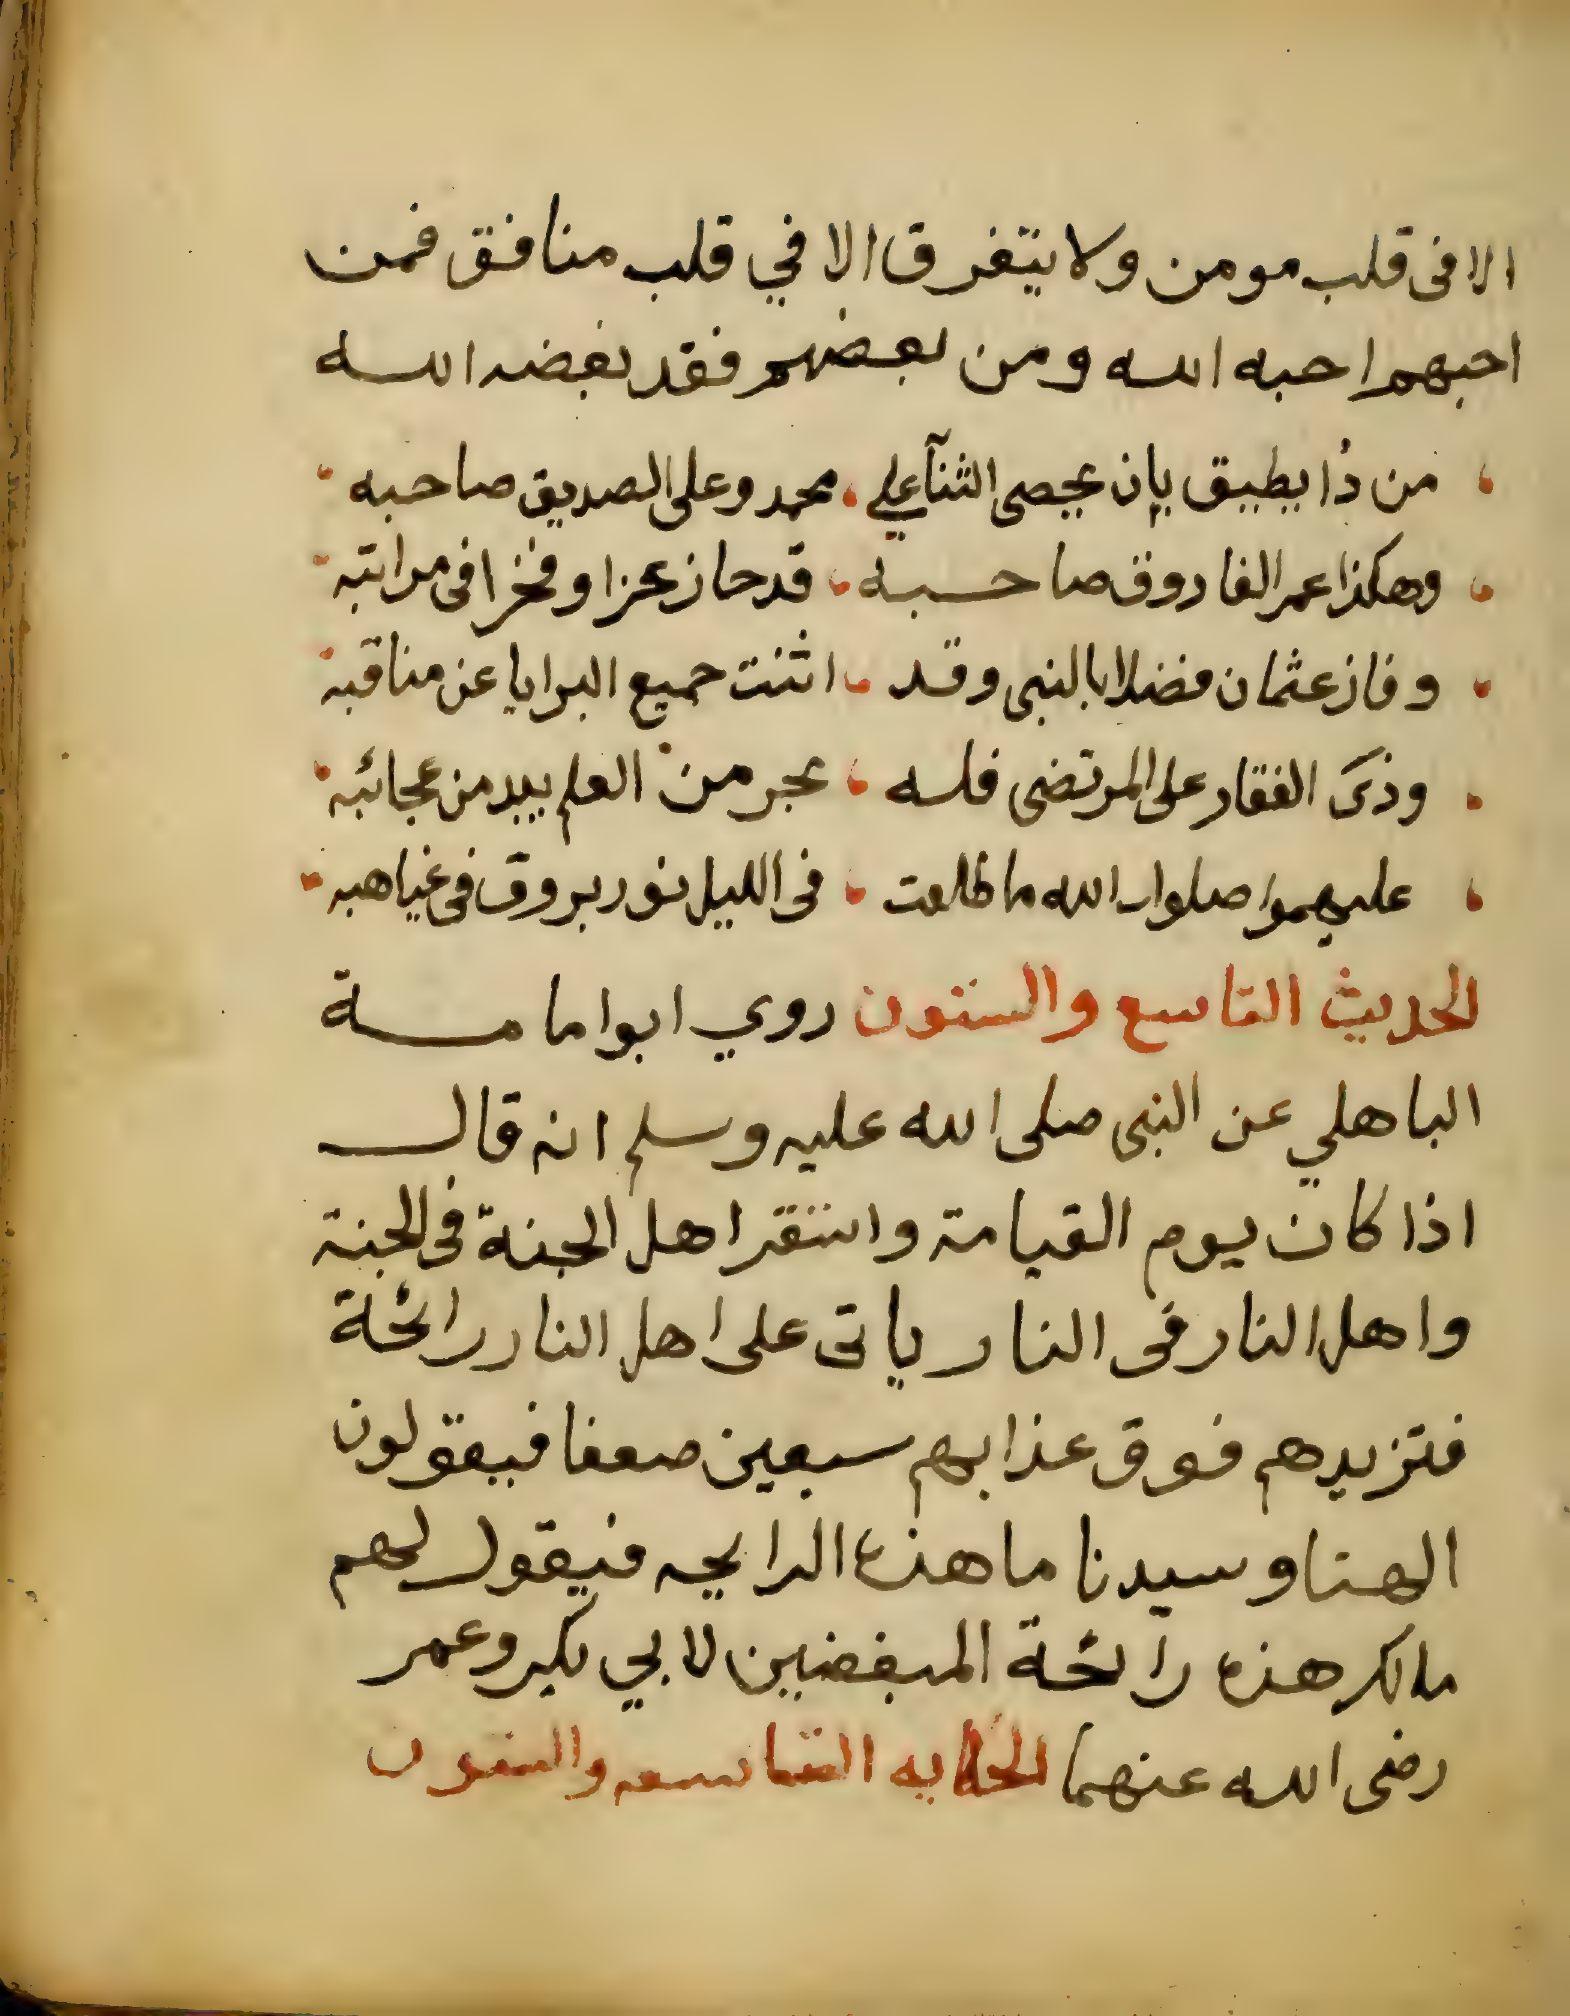 الا فى قلب مومن ولا يتفرق الا في قلب منافق فمن
احبهم احبه الله ومن بعضهم فقد بغضه الله
من ذا يطيق بان يحصى الثنآ علي ، محمد وعلى الصديق صاحبه
وهكذا عمر الفاروق صاحبه ، قد حاز عزا وفخرا فى مراتبه
وفاز عثمان فضلا بالنبى وقد ، اثنت جميع البرايا عن مناقبه
وذى الفقار على المرتضى فله ، بحر من العلم يبد من عجائبه
عليهموا صلوات الله ما طلعت ، فى الليل نور بروق فى غياهبه
الحديث التاسع والستون روي ابوا مامة
الباهلي عن النبى صلى الله عليه وسلم انه قال
اذا كان يوم القيامة واستقر اهل الجنة فى الجنة
واهل النار فى النار ياتى على اهل النار رائحة
فتزيدهم فوق عذابهم سبعين ضعفا فيقولون
الهنا وسيدنا ما هذه الرايحه فيقول لهم
مالك هذه رائحة المبغضين لابي بكر وعمر
رضى الله عنهما الحكايه التاسعه والستون